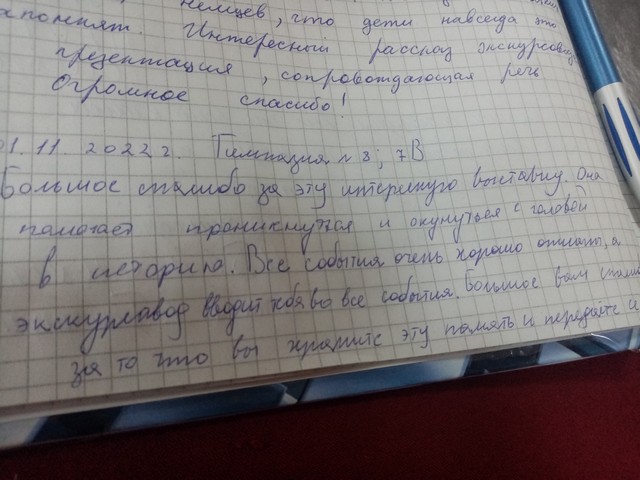 немцев, что дети навсегда это
запомнят. Интересный рассказ экскурсовода,
презентация, сопровождающая речь
Огромное спасибо!
01.11.2022г. Гимназия №8; 7В
Большое спасибо за эту интересную выставку. Она
помогает проникнуться и окунуться с головой
в историю. Все события очень хорошо описаны, а
экскурсовод вводит тебя во все события. Большое вам спасибо
за то что вы храните эту память и передаёте и